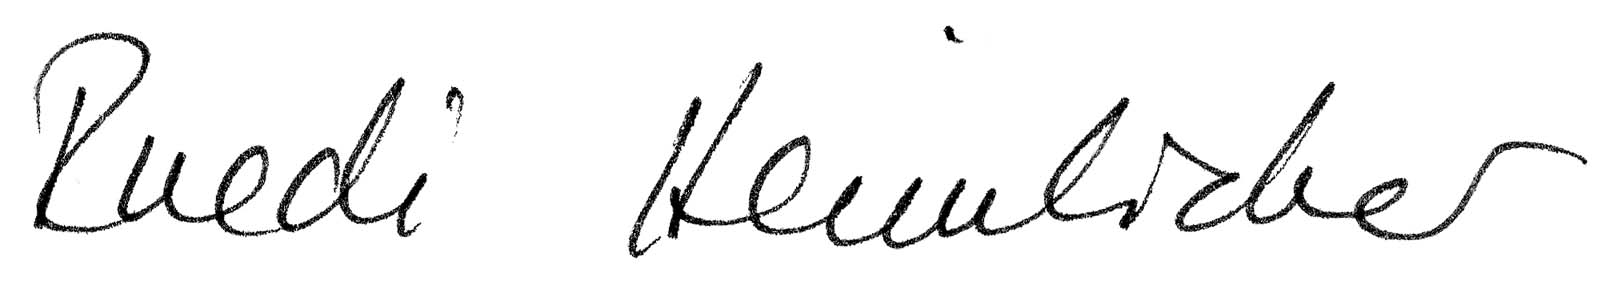 Ruedi Heimlicher